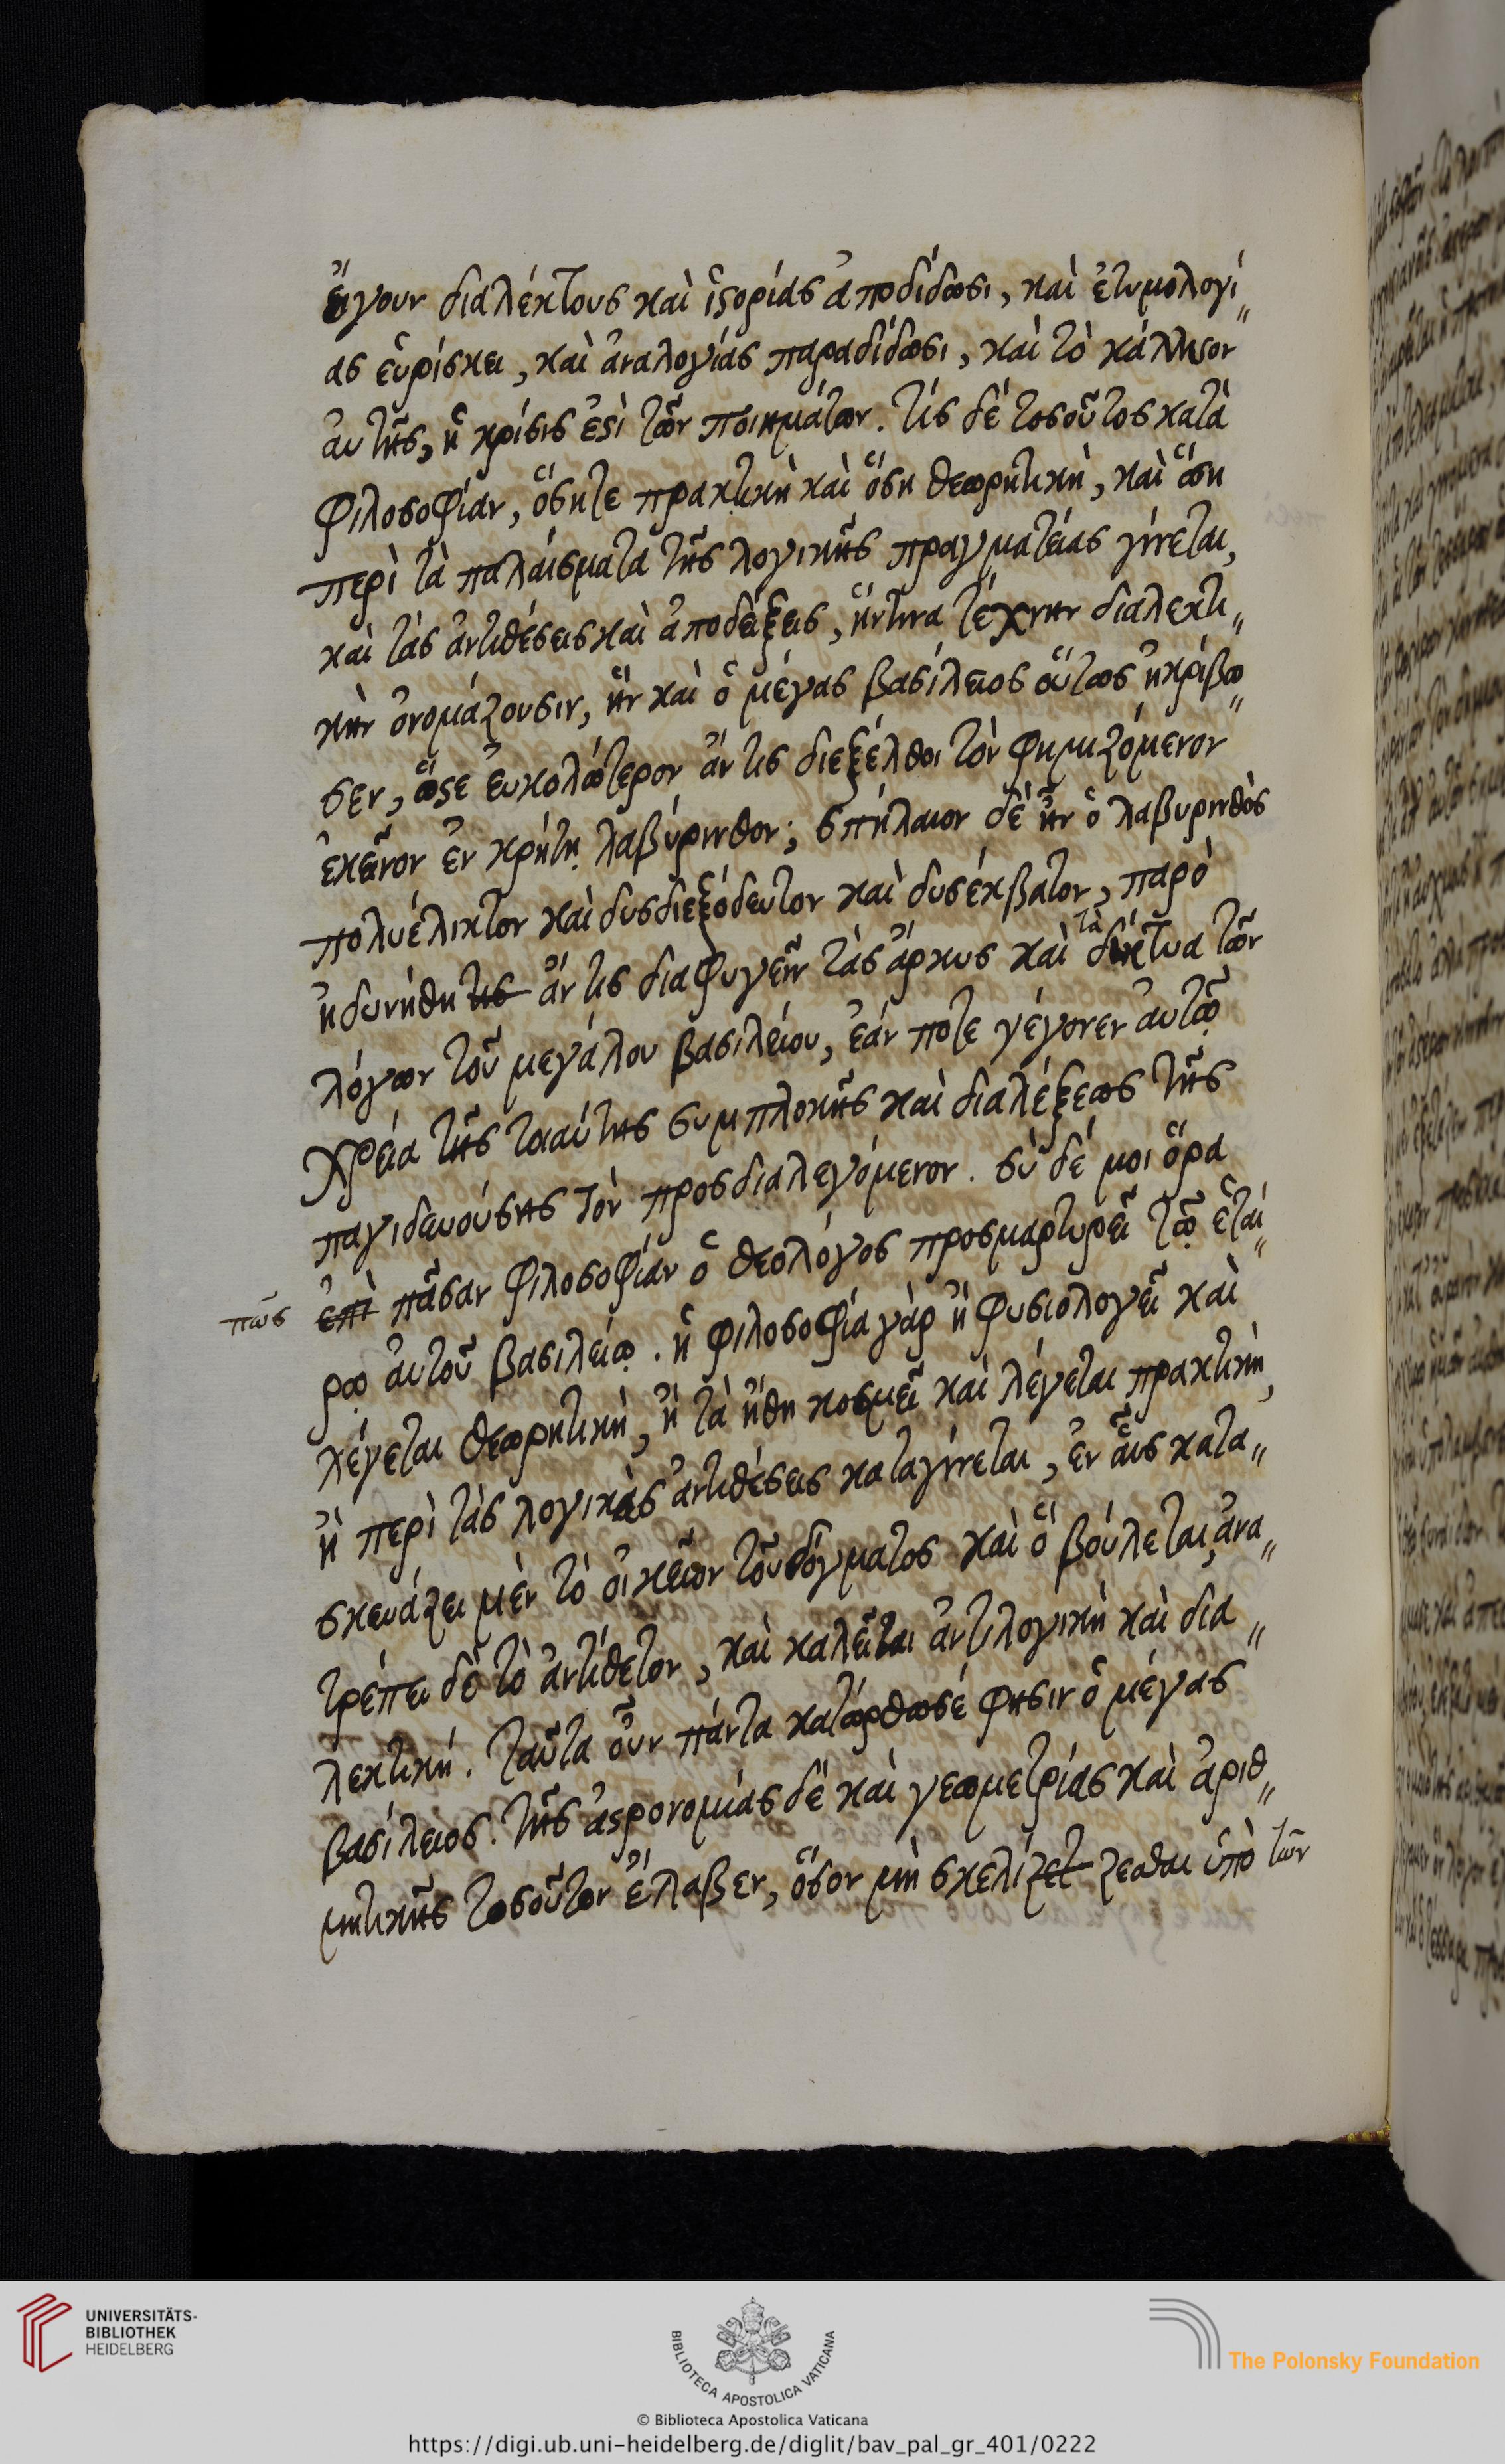 ἤγουν διαλέκτους καὶ ἱστορίας ἀποδίδωσι, καὶ ἐτυμολογί„
ας εὑρίσκει, καὶ ἀναλογίας παραδίδωσι, καὶ τὸ κάλλιστον
αὐτῆς, ἡ κρίσις ἐστὶ τῶν ποιημάτων. τίς δὲ τοσοῦτος κατὰ
φιλοσοφίαν, ὅσητε πρακτικὴ καὶ ὅση θεωρητικὴ, καὶ ὅση
περὶ τὰ παλαίσματα τῆς λογικῆς πραγματείας γίνεται,
καὶ τὰς ἀντιθέσεις καὶ ἀποδείξεις, ἥντινα τέχνην διαλεκτι„
κὴν ὀνομάζουσιν, ἣν καὶ ὁ μέγας βασίλειος οὕτως ἠκρίβω„
σεν, ὥστε εὐκολώτερον ἄν τις διεξέλθοι τὸν φημιζόμενον
ἐκεῖνον ἐν κρήτῃ λαβύρινθον; σπήλαιον δὲ ἦν ὁ λαβυρινθὸς
πολυέλικτον καὶ δυσδιεξόδευτον καὶ δυσέκβατον, παρὸ
ἠδυνήθη τις ἄν τις διαφυγεῖν τὰς ἄρκυς καὶ τὰ δίκτυα τῶν
λόγων τοῦ μεγάλου βασιλείου, ἐάν ποτε γέγονεν αὐτῷ
χρεία τῆς τοιαύτης συμπλοκῆς καὶ διαλέξεως τῆς
παγιδευούσης τὸν προσδιαλεγόμενον. σὺ δέ μοι ὅρα
πῶς ἐπὶ πᾶσαν φιλοσοφίαν ὁ θεολόγος προσμαρτυρεῖ τῷ ἑταί„
ρῳ αὐτοῦ βασιλείῳ. ἡ φιλοσοφία γὰρ ἢ φυσιολογεῖ καὶ
λέγεται θεωρητικὴ, ἢ τὰ ἤθη κοσμεῖ καὶ λέγεται πρακτικὴ,
ἢ περὶ τὰς λογικὰς ἀντιθέσεις καταγίνεται, ἐν αἷς κατα„
σκευάζει μὲν τὸ οἰκεῖον τοῦ δόγματος καὶ ὃ βούλεται, ἀνα„
τρέπει δὲ τὸ ἀντίθετον, καὶ καλεῖται ἀντιλογικὴ καὶ δια„
λεκτική. ταῦτα οὖν πάντα κατώρθωσέ φησιν ὁ μέγας
βασίλειος. τῆς ἀστρονομίας δὲ καὶ γεωμετρίας καὶ ἀριθ„
μητικῆς τοσοῦτον ἔλαβεν, ὅσον μὴ σκελίζετ ζεσθαι ὑπὸ τῶν
UNIVERSITÄTS-
BIBLIOTHEK
HEIDELBERG
BIBLIOTECA APOSTOLICA VATICANA
The Polonsky Foundation
© Biblioteca Apostolica Vaticana
https://digi.ub.uni-heidelberg.de/diglit/bav_pal_gr_401/0222